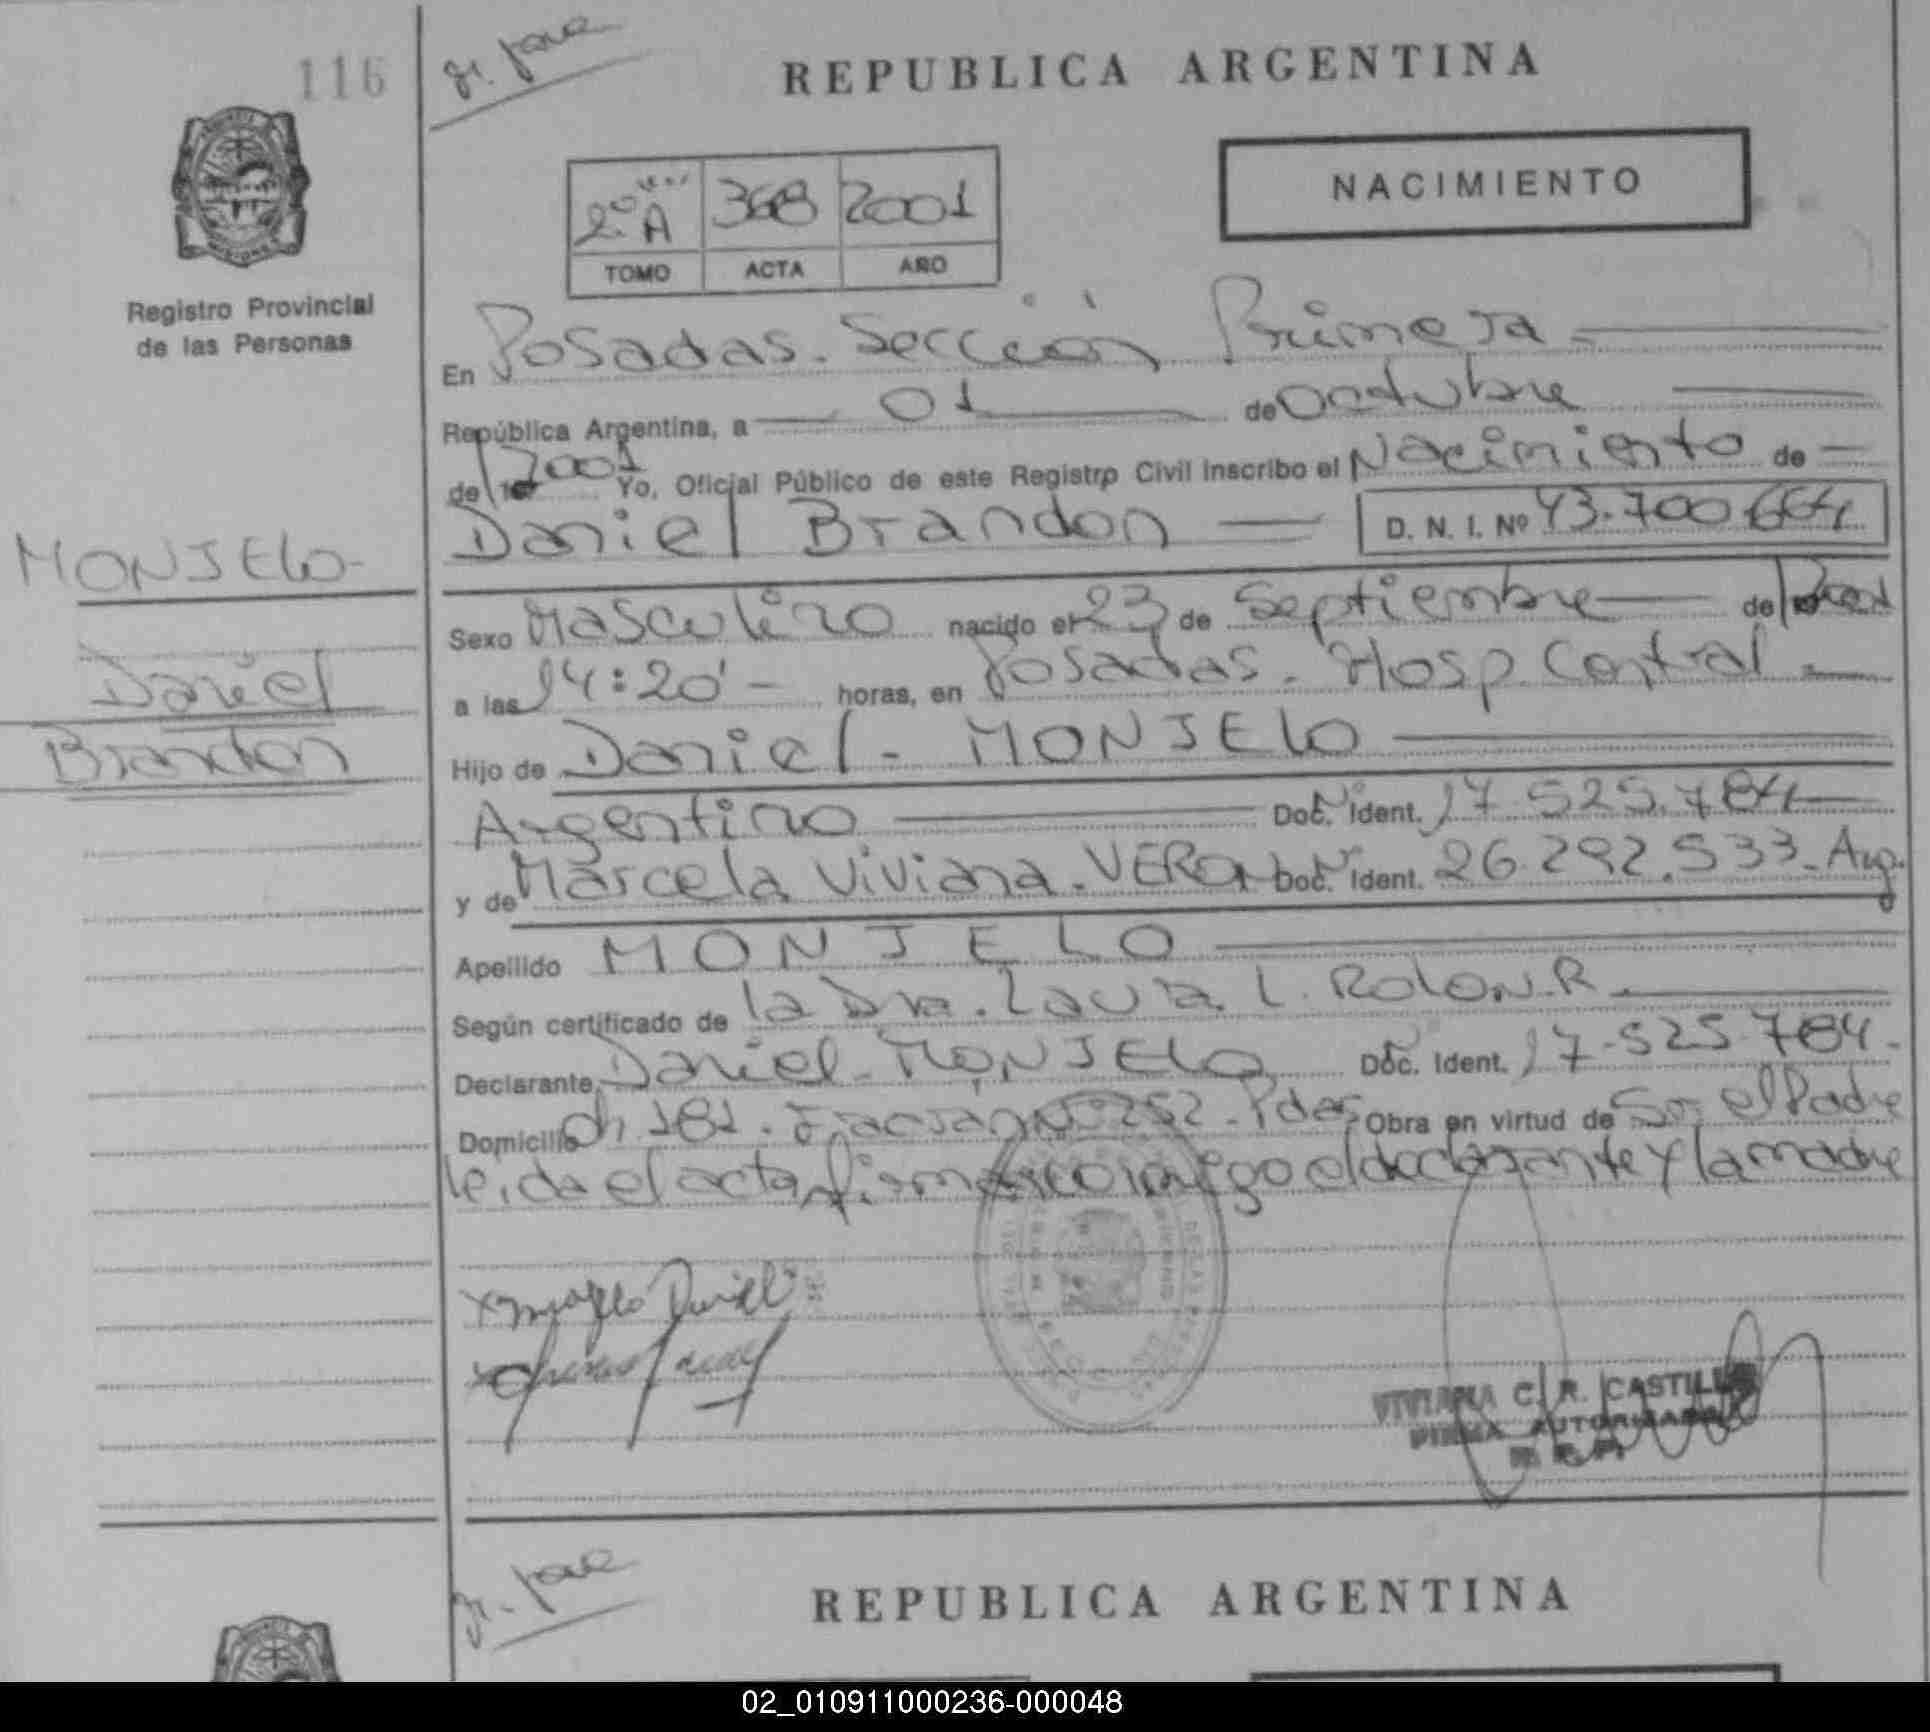 116
Gr. pore
REPUBLICA ARGENTINA
NACIMIENTO
2º A 368 2001
TOMO ACTA AÑO
Registro Provincial
de las Personas
En Posadas. Sección Primera
República Argentina, a 01 de Octubre
de 2001 Yo, Oficial Público de este Registro Civil inscribo el Nacimiento de
Daniel Brandon D. N. I. Nº 43.700.664
MONJELO
Daniel
Brandon
Sexo Masculino nacido el 23 de Septiembre de 2001
a las 14:20' horas, en Posadas. Hosp. Central
Hijo de Daniel - MONJELO
Argentino Doc. Ident. 17.525.784
y de Marcela Viviana. VERON Doc. Ident. 26.292.533 - Arg.
Apellido MONJELO
Según certificado de la Dra. Laura L. ROLON. R.
Declarante Daniel - MONJELO Doc. Ident. 17.525.784
Domicilio Ch 181. Nº 252 - Pdas Obra en virtud de Ser el Padre
leida el acta firman conmigo el declarante y la madre
Monjelo Daniel
VIVIANA C. R. CASTILLO
FIRMA AUTORIZADA
R. P. P.
REPUBLICA ARGENTINA
02_010911000236-000048